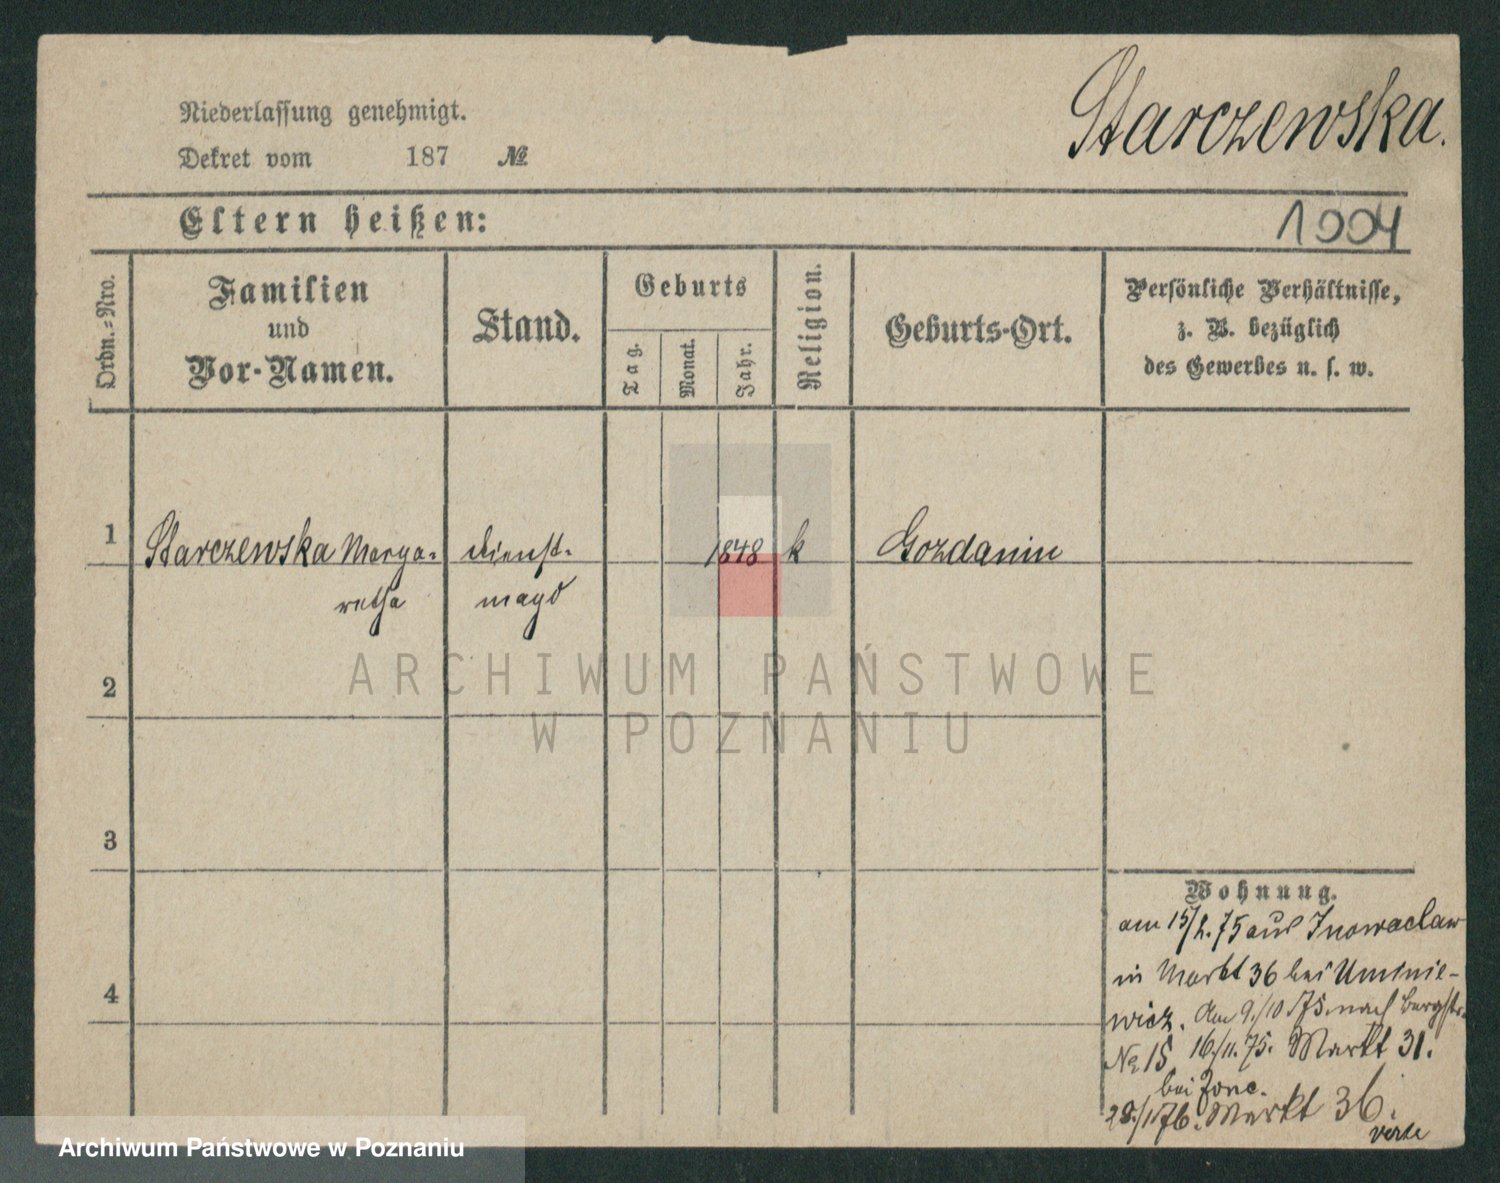 Starczewska.
Niederlassung genehmigt.
Dekret vom 187 №
Eltern heißen:
1004
Ordn.=Nro.
Familien
und
Vor-Namen.
Stand.
Geburts
Tag.
Monat.
Jahr.
Religion.
Geburts-Ort.
Persönliche Verhältnisse,
z. B. bezüglich
des Gewerbes u. s. w.
1 Starczewska Marga= Dienst= 1848 k Gozdanin
retha magd
2
3
4
Wohnung.
am 15/2. 75 aus Inowraclaw
in Markt 36 bei Uminie-
wicz. Am 9./10 75 nach Bergstr.
No 15 16./11. 75. Markt 31.
bei
28./1 76. Markt 36.
verte
ARCHIWUM PAŃSTWOWE
W POZNANIU
Archiwum Państwowe w Poznaniu